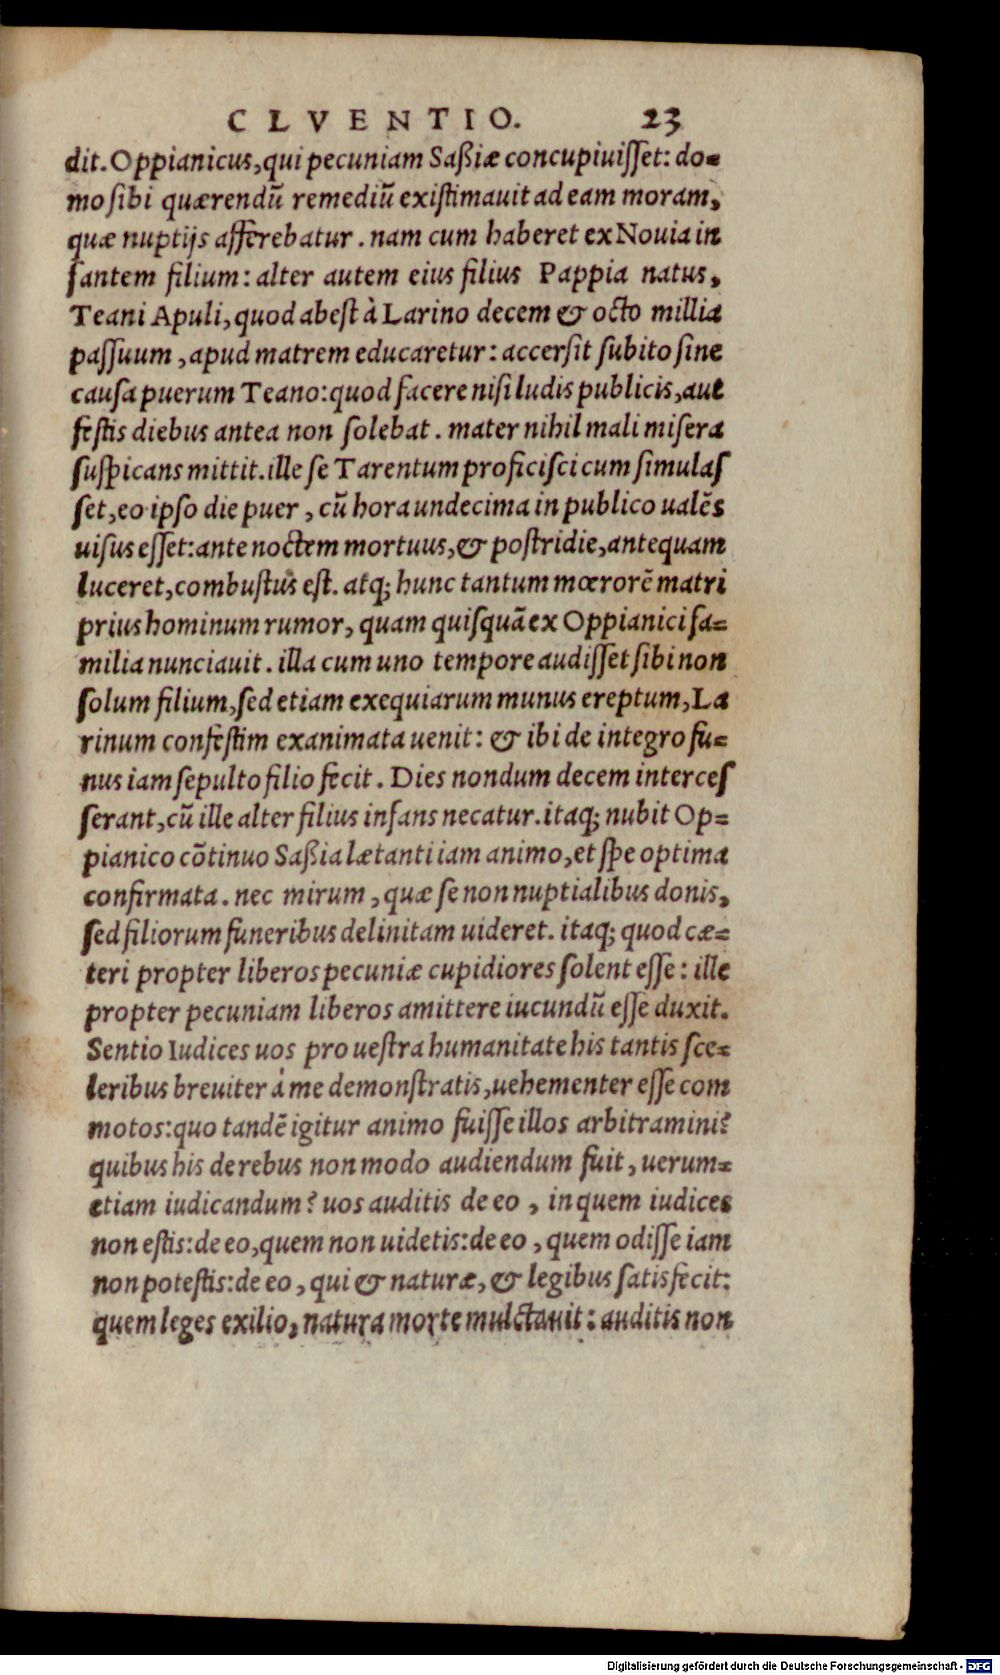 CLVENTIO. 23
dit. Oppianicus, qui pecuniam Saßiæ concupiuiſſet: do=
mo ſibi quærendũ remediũ exiſtimauit ad eam moram,
quæ nuptijs afferebatur. nam cum haberet ex Nouia in
fantem filium: alter autem eius filius Pappia natus,
Teani Apuli, quod abeſt à Larino decem & octo millia
paſſuum, apud matrem educaretur: accerſit ſubito ſine
cauſa puerum Teano: quod facere niſi ludis publicis, aut
feſtis diebus antea non ſolebat. mater nihil mali miſera
ſuſpicans mittit. ille ſe Tarentum proficiſci cum ſimulaſ
ſet, eo ipſo die puer, cũ hora undecima in publico ualẽs
uiſus eſſet: ante noctem mortuus, & poſtridie, antequam
luceret, combuſtus eſt. atq; hunc tantum mœrorẽ matri
prius hominum rumor, quam quiſquã ex Oppianici fa=
milia nunciauit. illa cum uno tempore audiſſet ſibi non
ſolum filium, ſed etiam exequiarum munus ereptum, La
rinum confeſtim exanimata uenit: & ibi de integro fu=
nus iam ſepulto filio fecit. Dies nondum decem interceſ
ſerant, cũ ille alter filius infans necatur. itaq; nubit Op=
pianico cõtinuo Saßia lætanti iam animo, et ſpe optima
confirmata. nec mirum, quæ ſe non nuptialibus donis,
ſed filiorum funeribus delinitam uideret. itaq; quod cæ=
teri propter liberos pecuniæ cupidiores ſolent eſſe: ille
propter pecuniam liberos amittere iucundũ eſſe duxit.
Sentio Iudices uos pro ueſtra humanitate his tantis ſce=
leribus breuiter à me demonſtratis, uehementer eſſe com
motos: quo tandẽ igitur animo fuiſſe illos arbitramini?
quibus his de rebus non modo audiendum fuit, uerum=
etiam iudicandum? uos auditis de eo, in quem iudices
non eſtis: de eo, quem non uidetis: de eo, quem odiſſe iam
non poteſtis: de eo, qui & naturæ, & legibus ſatisfecit:
quem leges exilio, natura morte mulctauit: auditis non
Digitalisierung gefördert durch die Deutsche Forschungsgemeinschaft - DFG